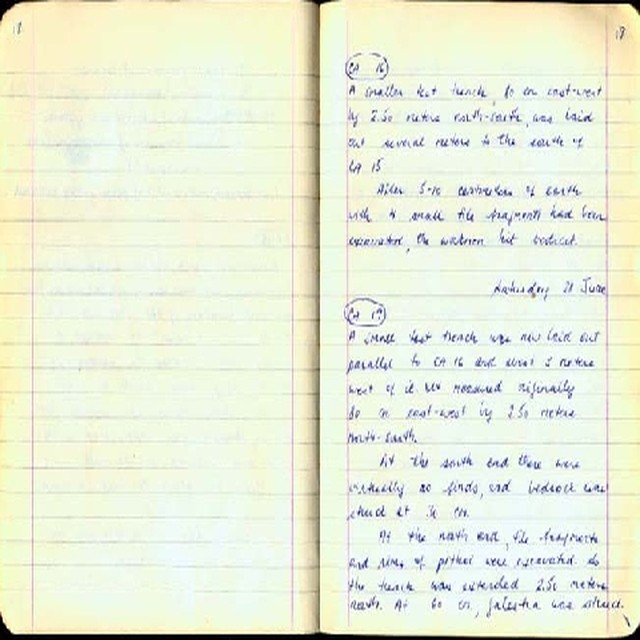 18
CA 16
A smaller test trench, 80 cm east-west
by 2.50 metres north-south, was laid
out several metres to the south of
CA 15
After 5-10 centimetres of earth
with small tile fragments had been
excavated, the workmen hit bedrock.
Saturday 21 June
CA 17
A small test trench was now laid out
parallel to CA 16 and about 5 metres
west of it. It measured originally
80 cm east-west by 2.50 metres
north-south.
At the south end there were
virtually no finds, and bedrock was
struck at cm.
At the north end, tile fragments
and rims of pithoi were excavated. So
the trench was extended 2.50 metres
north. At 60 cm, was struck.